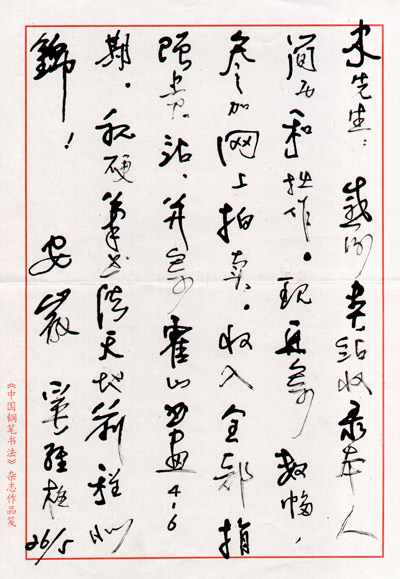 先生：感谢贵站收录本人
简历和拙作。现再寄数幅，
参加网上拍卖。收入全部捐
赠贵站。并寄霍山书画4-6
期。祝硬笔书法天地前程似
锦！
安徽
26/5
《中国钢笔书法》杂志作品笺